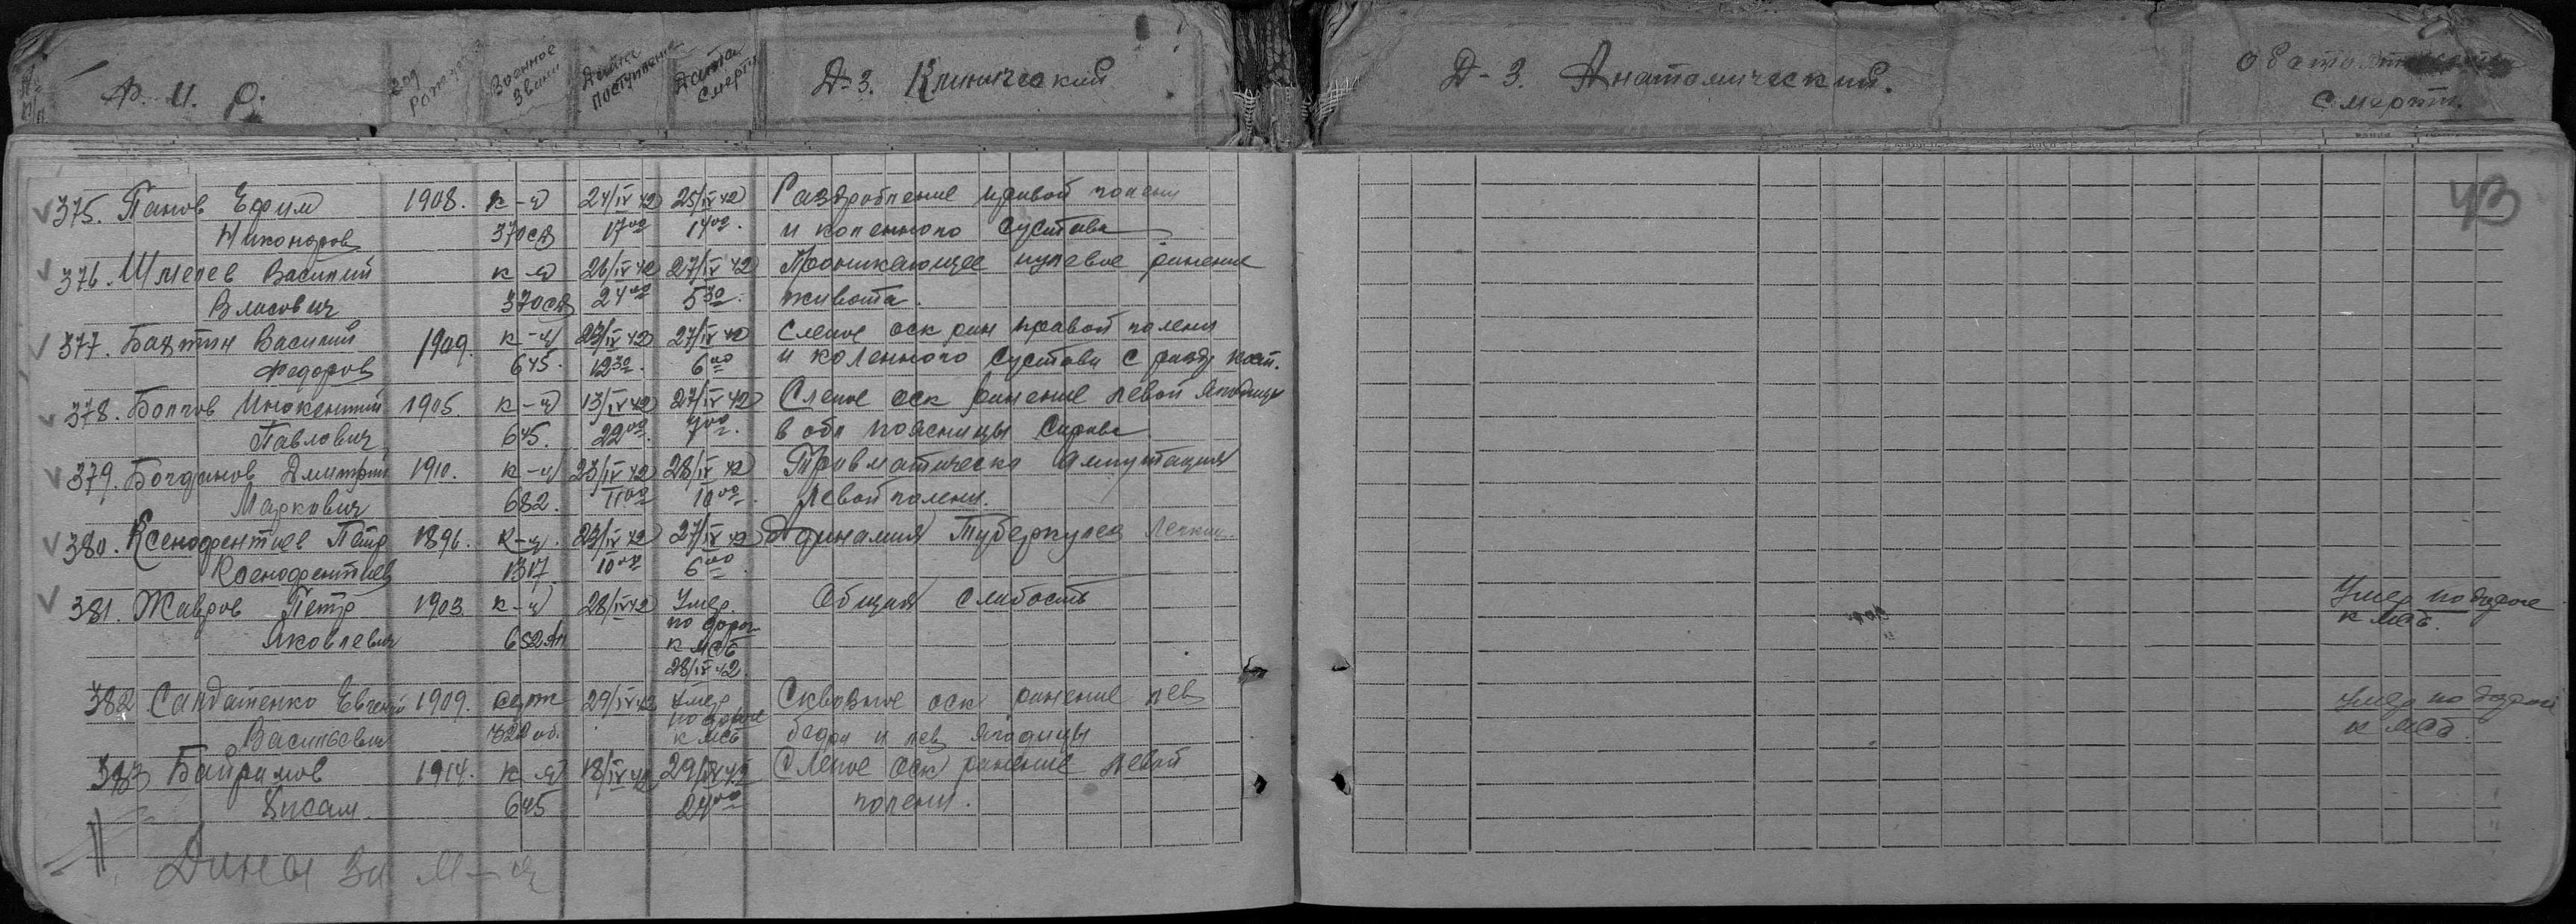 № п/п Ф. И. О. год рожд. Военное звание Дата поступления Дата смерти Д-з. Клинический Д-з. Анатомический. смерти.
43
375. Панов Ефим 1908. к-ц 24/IV 42 25/IV 42 Раздробление правой голени
Никоноров 370сд 17 00 14 00. и коленного сустава
376. Шмелев Василий к-ц 26/IV 42 27/IV 42 Проникающее пулевое ранение
Власович 370сд 24 00 5 30. живота.
377. Бахтин Василий 1909. к-ц 23/IV 42 27/IV 42 Слепое оск ран правой голени
Федоров 645. 12 30. 6 00 и коленного сустава с разд кост.
378. Инокентий 1905. к-ц 13/IV 42 27/IV 42 Слепое оск ранение левой ягодицы
Павлович 645. 22 00. 7 00. в обл поясницы справа.
379. Богданов Дмитрий 1910. к-ц 23/IV 42 28/IV 42 Травматическа ампутация
Маркович 682. 11 00 10 00. левой голени.
380. Ксенофентиев Петр 1896. к-ц. 23/IV 42 27/IV 42 Адинамия Туберкулез легких.
Ксенофентиев 1317 10 00 6 00.
381. Жавров Петр 1903 к-ц 28/IV 42 Умер. Общая слабость Умер по дороге
Яковлевич 652 по дорог к МСБ.
к МСБ
28/IV 42.
382 Салдатенко Евгений 1909. серж 29/IV 42 Умер Сквозное оск ранение лев Умер по дороги
Васильевич по дороге к МСБ.
к МСБ бедра и лев ягодицы
383 Байрамов 1914. к-ц 18/IV 42 29/IV 42 Слепое оск ранение левой
645 24 00 голени.